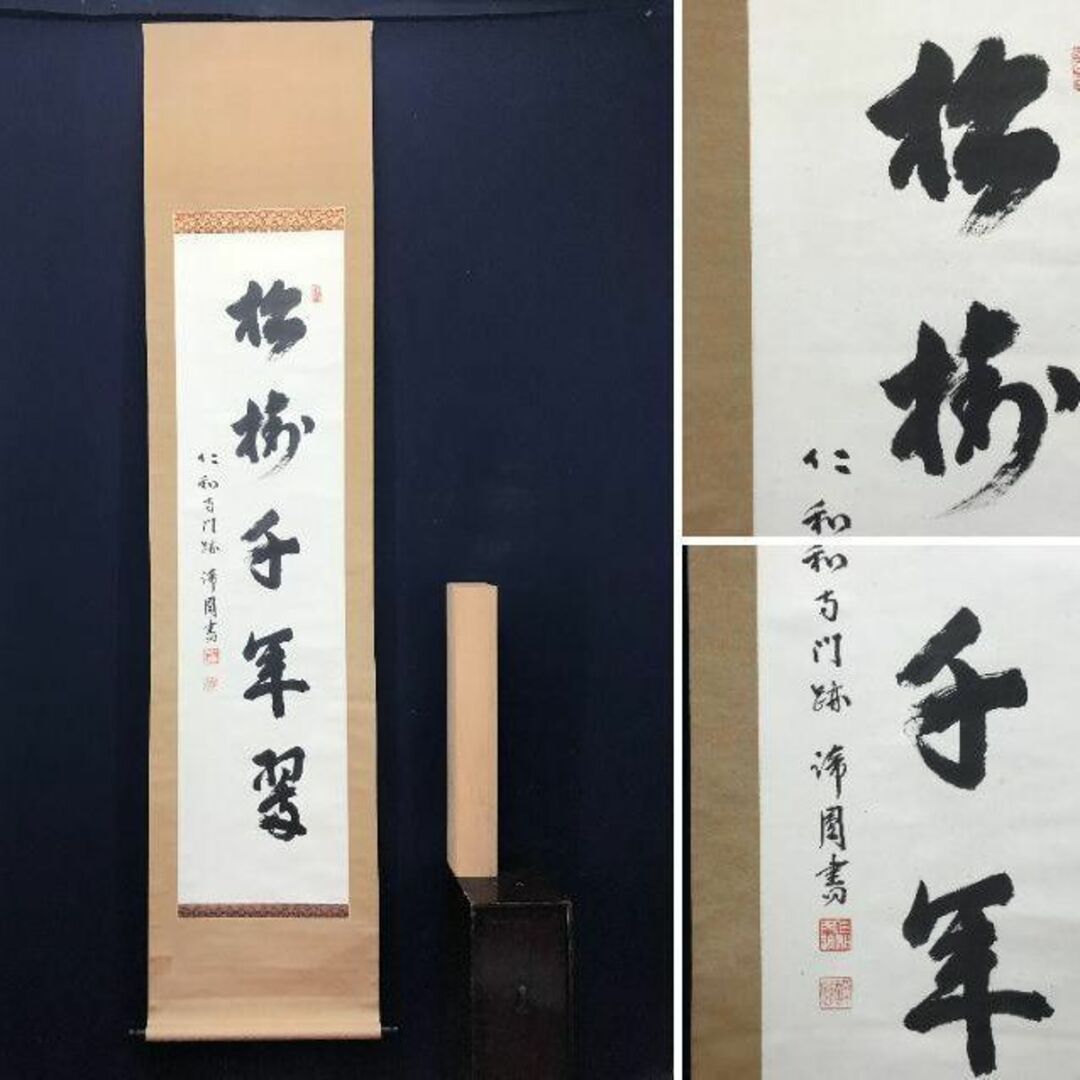 松樹千年翠
仁和寺門跡 諦圓書
松樹
仁和
千年
和寺門跡 諦圓書